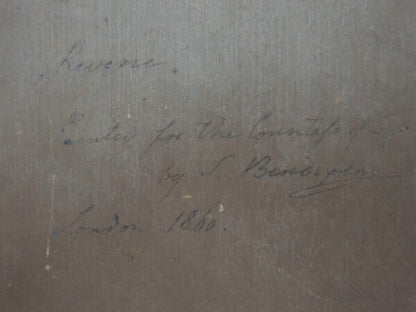 Reverie.
Painted for the Countess of
by S.
London 1860.